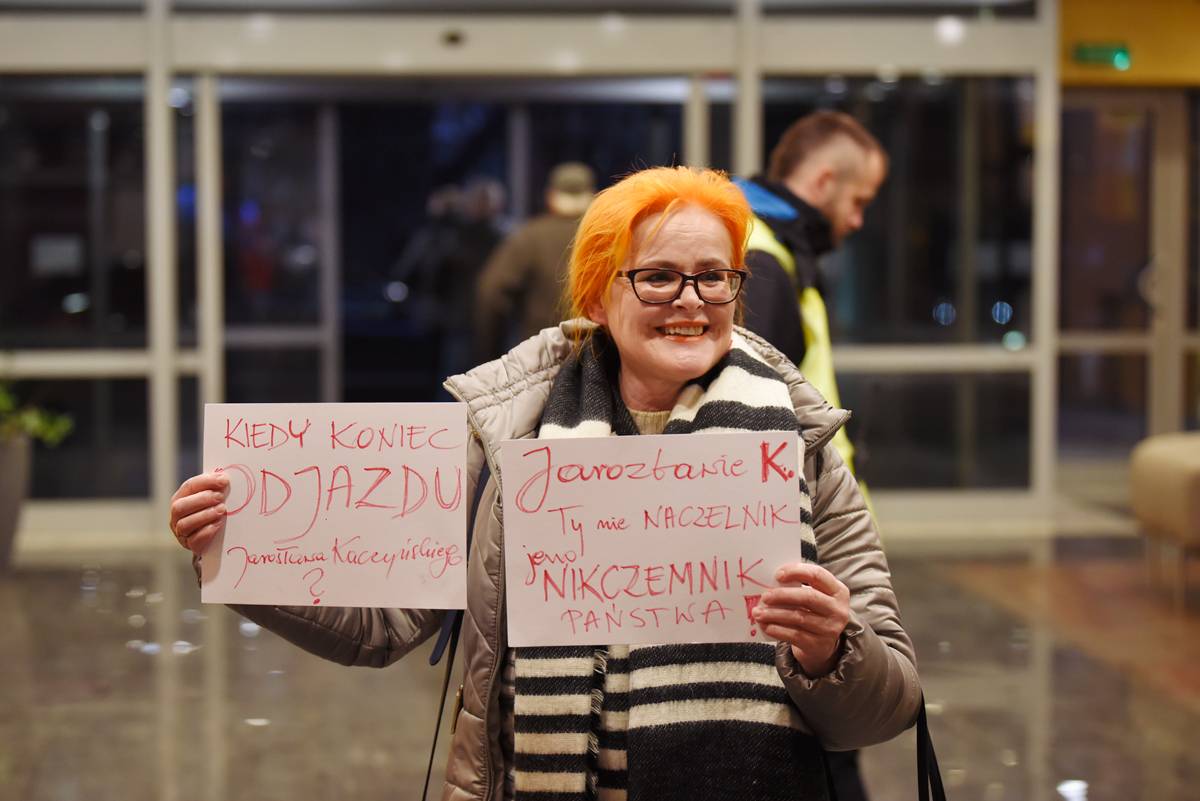 KIEDY KONIEC
ODJAZDU
Jarosława Kaczyńskiego
?
Jarozbawie K.
Ty nie NACZELNIK
jeno
NIKCZEMNIK
PAŃSTWA !